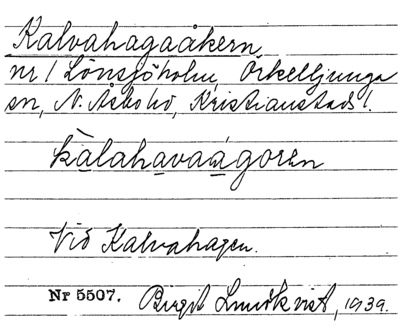 Kalvahagaåkern
nr 1 Lönsjöholm, Örkelljunga
sn, N. Åsbo hd, Kristianstads l.
kalahavaågoren
Vid Kalvahagen.
Nr 5507. Birgit Lundkvist, 1939.